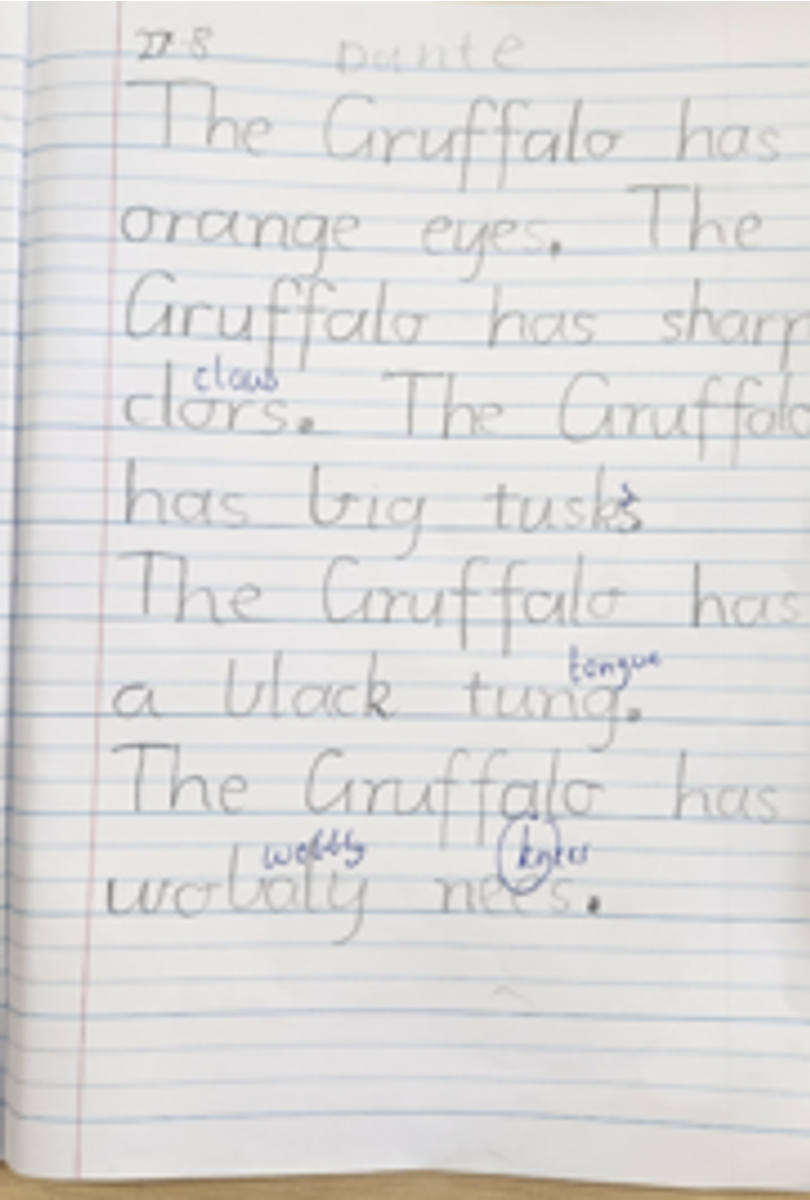 27-8 Dante
The Gruffalo has
orange eyes. The
Gruffalo has sharp
claws
clors. The Gruffalo
has big tusks
The Gruffalo has
tongue
a black tung.
The Gruffalo has
wobbly knees
wobaly nees.